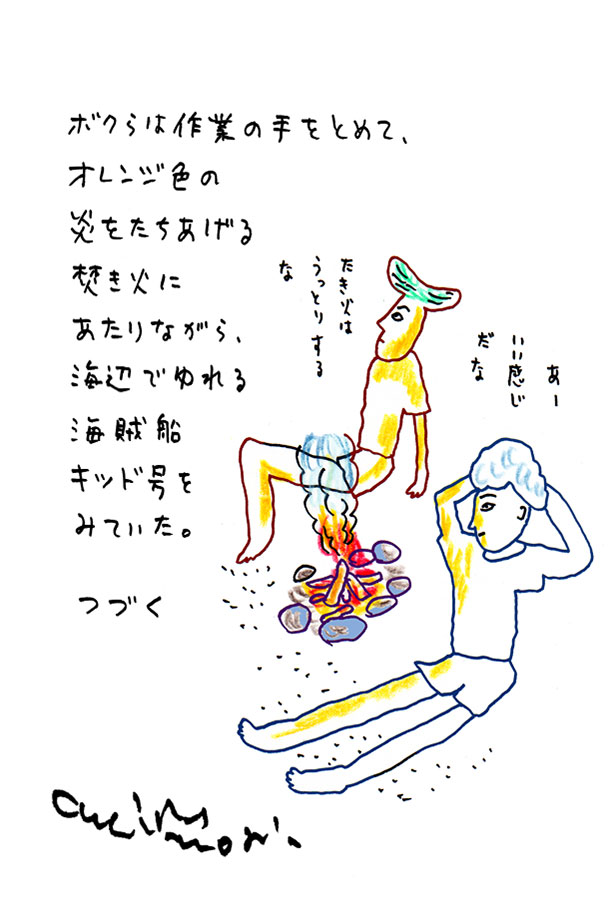 ボクらは作業の手をとめて、
オレンジ色の
炎をたちあげる
焚き火に
あたりながら、
海辺でゆれる
海賊船
キッド号を
みていた。
つづく
たき火は
うっとりする
な
あー
いい感じ
だな